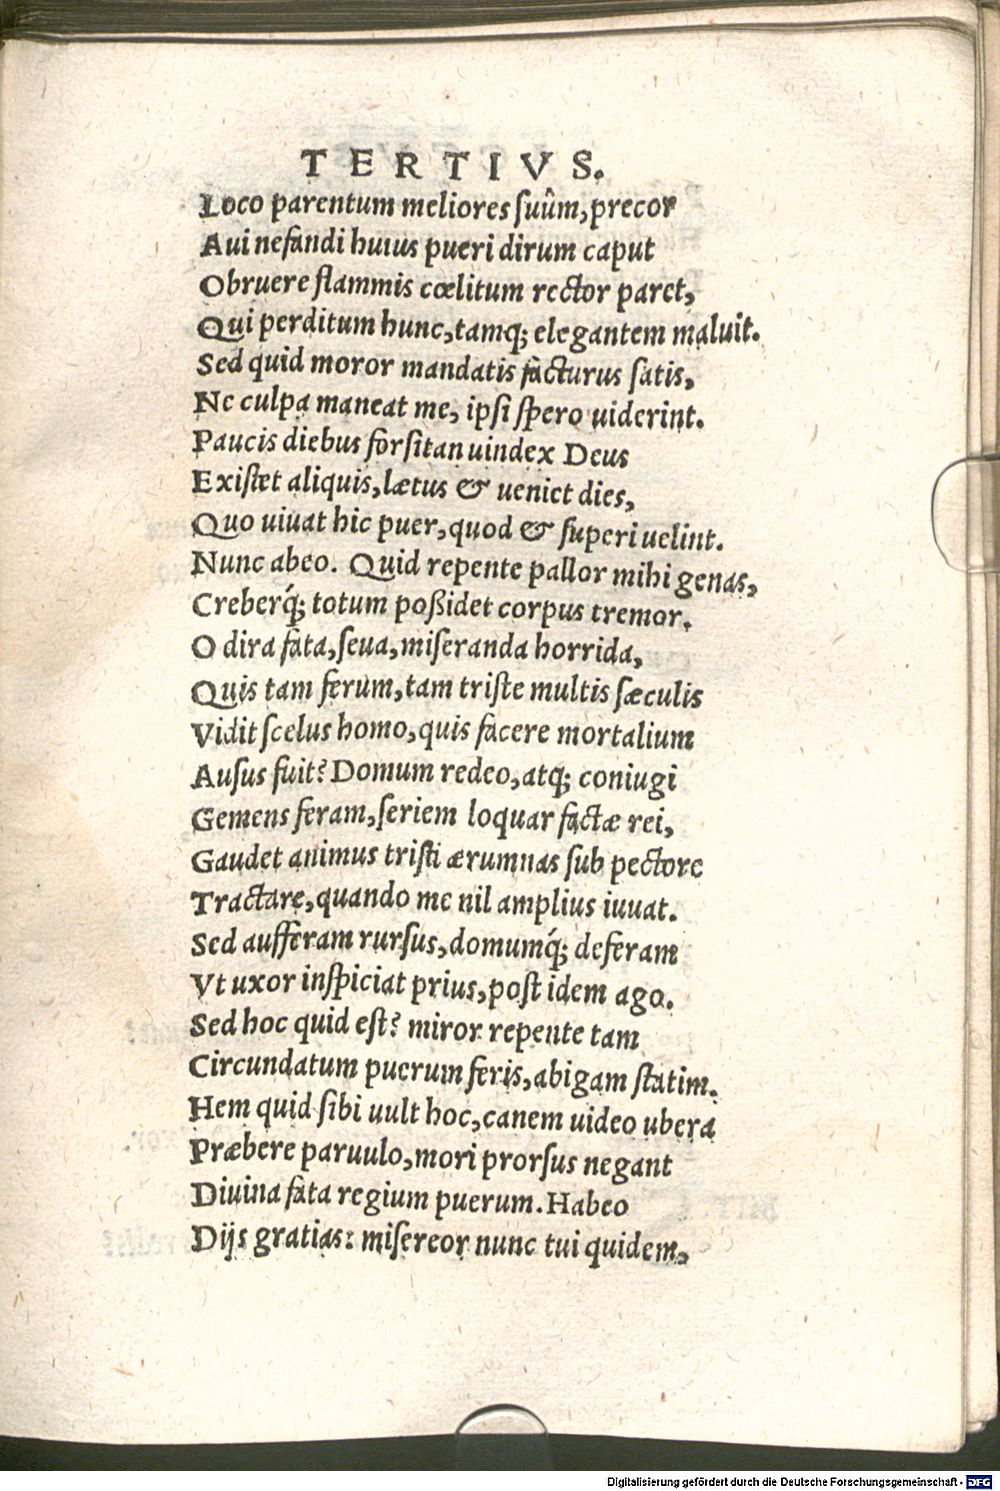 TERTIVS.
Loco parentum meliores suûm, precor
Aui nefandi huius pueri dirum caput
Obruere flammis cœlitum rector paret,
Qui perditum hunc, tamq; elegantem maluit.
Sed quid moror mandatis facturus satis,
Ne culpa maneat me, ipsi spero uiderint.
Paucis diebus forsitan uindex Deus
Existet aliquis, lætus & ueniet dies,
Quo uiuat hic puer, quod & superi uelint.
Nunc abeo. Quid repente pallor mihi genas,
Creberq́; totum poßidet corpus tremor.
O dira fata, seua, miseranda horrida,
Quis tam ferum, tam triste multis sæculis
Vidit scelus homo, quis facere mortalium
Ausus fuit? Domum redeo, atq; coniugi
Gemens feram, seriem loquar factæ rei,
Gaudet animus tristi ærumnas sub pectore
Tractare, quando me nil amplius iuuat.
Sed aufferam rursus, domumq́; deferam
Vt uxor inspiciat prius, post idem ago.
Sed hoc quid est? miror repente tam
Circundatum puerum feris, abigam statim.
Hem quid sibi uult hoc, canem uideo ubera
Præbere paruulo, mori prorsus negant
Diuina fata regium puerum. Habeo
Dijs gratias: misereor nunc tui quidem,
Digitalisierung gefördert durch die Deutsche Forschungsgemeinschaft - DFG